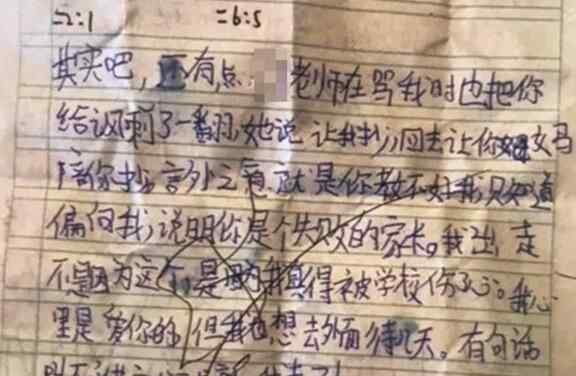 =2:1 =6:5
其实吧,还有点 老师在骂我时也把你
给讽刺了一番,她说让我抄,回去让你妈
陪你抄,言外之意就是你教不好我,只知道
偏向我,说明你是个失败的家长。我出走
不是因为这个,是因为我真得被学校伤了心。我心
里是爱你的,但我也想去外面待几天。有句话